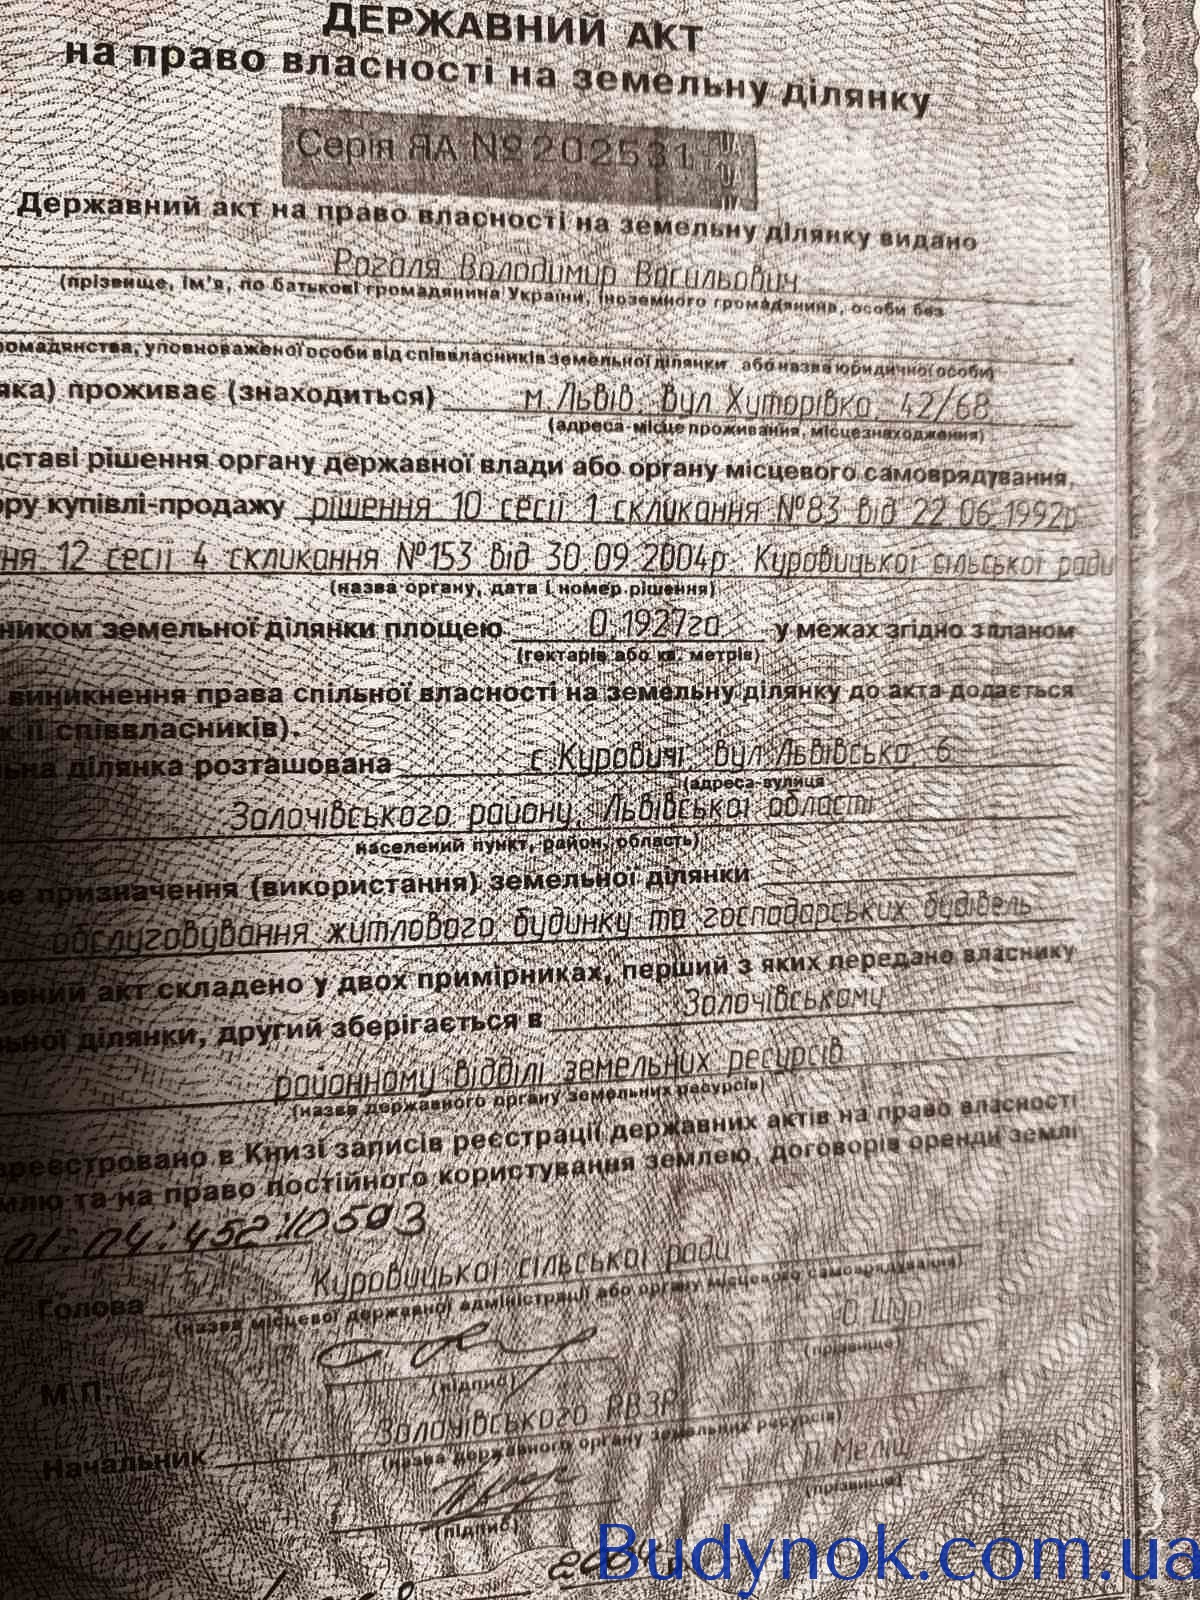 ДЕРЖАВНИЙ АКТ
на право власності на земельну ділянку
Серія ЯА №202531
UA
UA
Державний акт на право власності на земельну ділянку видано
Рогаля Володимир Васильович
(прізвище, ім'я, по батькові громадянина України, іноземного громадянина, особи без
ромадянства, уповноваженої особи від співвласників земельної ділянки або назва юридичної особи)
яка) проживає (знаходиться) м.Львів, вул Хуторівка, 42/68
(адреса-місце проживання, місцезнаходження)
дставі рішення органу державної влади або органу місцевого самоврядування,
ору купівлі-продажу рішення 10 сесії 1 скликання №83 від 22.06.1992р
ня 12 сесії 4 скликання №153 від 30.09.2004р. Куровицької сільської ради
(назва органу, дата і номер рішення)
ником земельної ділянки площею 0,1927га у межах згідно з планом
(гектарів або кв. метрів)
виникнення права спільної власності на земельну ділянку до акта додається
к її співвласників).
ьна ділянка розташована с Куровичі, вул.Львівська, 6
(адреса-вулиця
Золочівського району, Львівської області
населений пункт, район, область)
ве призначення (використання) земельної ділянки
обслуговування житлового будинку та господарських будівель
авний акт складено у двох примірниках, перший з яких передано власнику
ьної ділянки, другий зберігається в Золочівському
районному відділі земельних ресурсів
(назва державного органу земельних ресурсів)
ареєстровано в Книзі записів реєстрації державних актів на право власності
млю та на право постійного користування землею, договорів оренди землі
Куровицької сільської ради
Голова
(назва місцевої державної адміністрації або органу місцевого самоврядування)
О.Щур
(підпис) (прізвище)
М.П.
Золочівського РВЗР
Начальник
(назва державного органу земельних ресурсів)
(підпис) (прізвище)
Budynok.com.ua